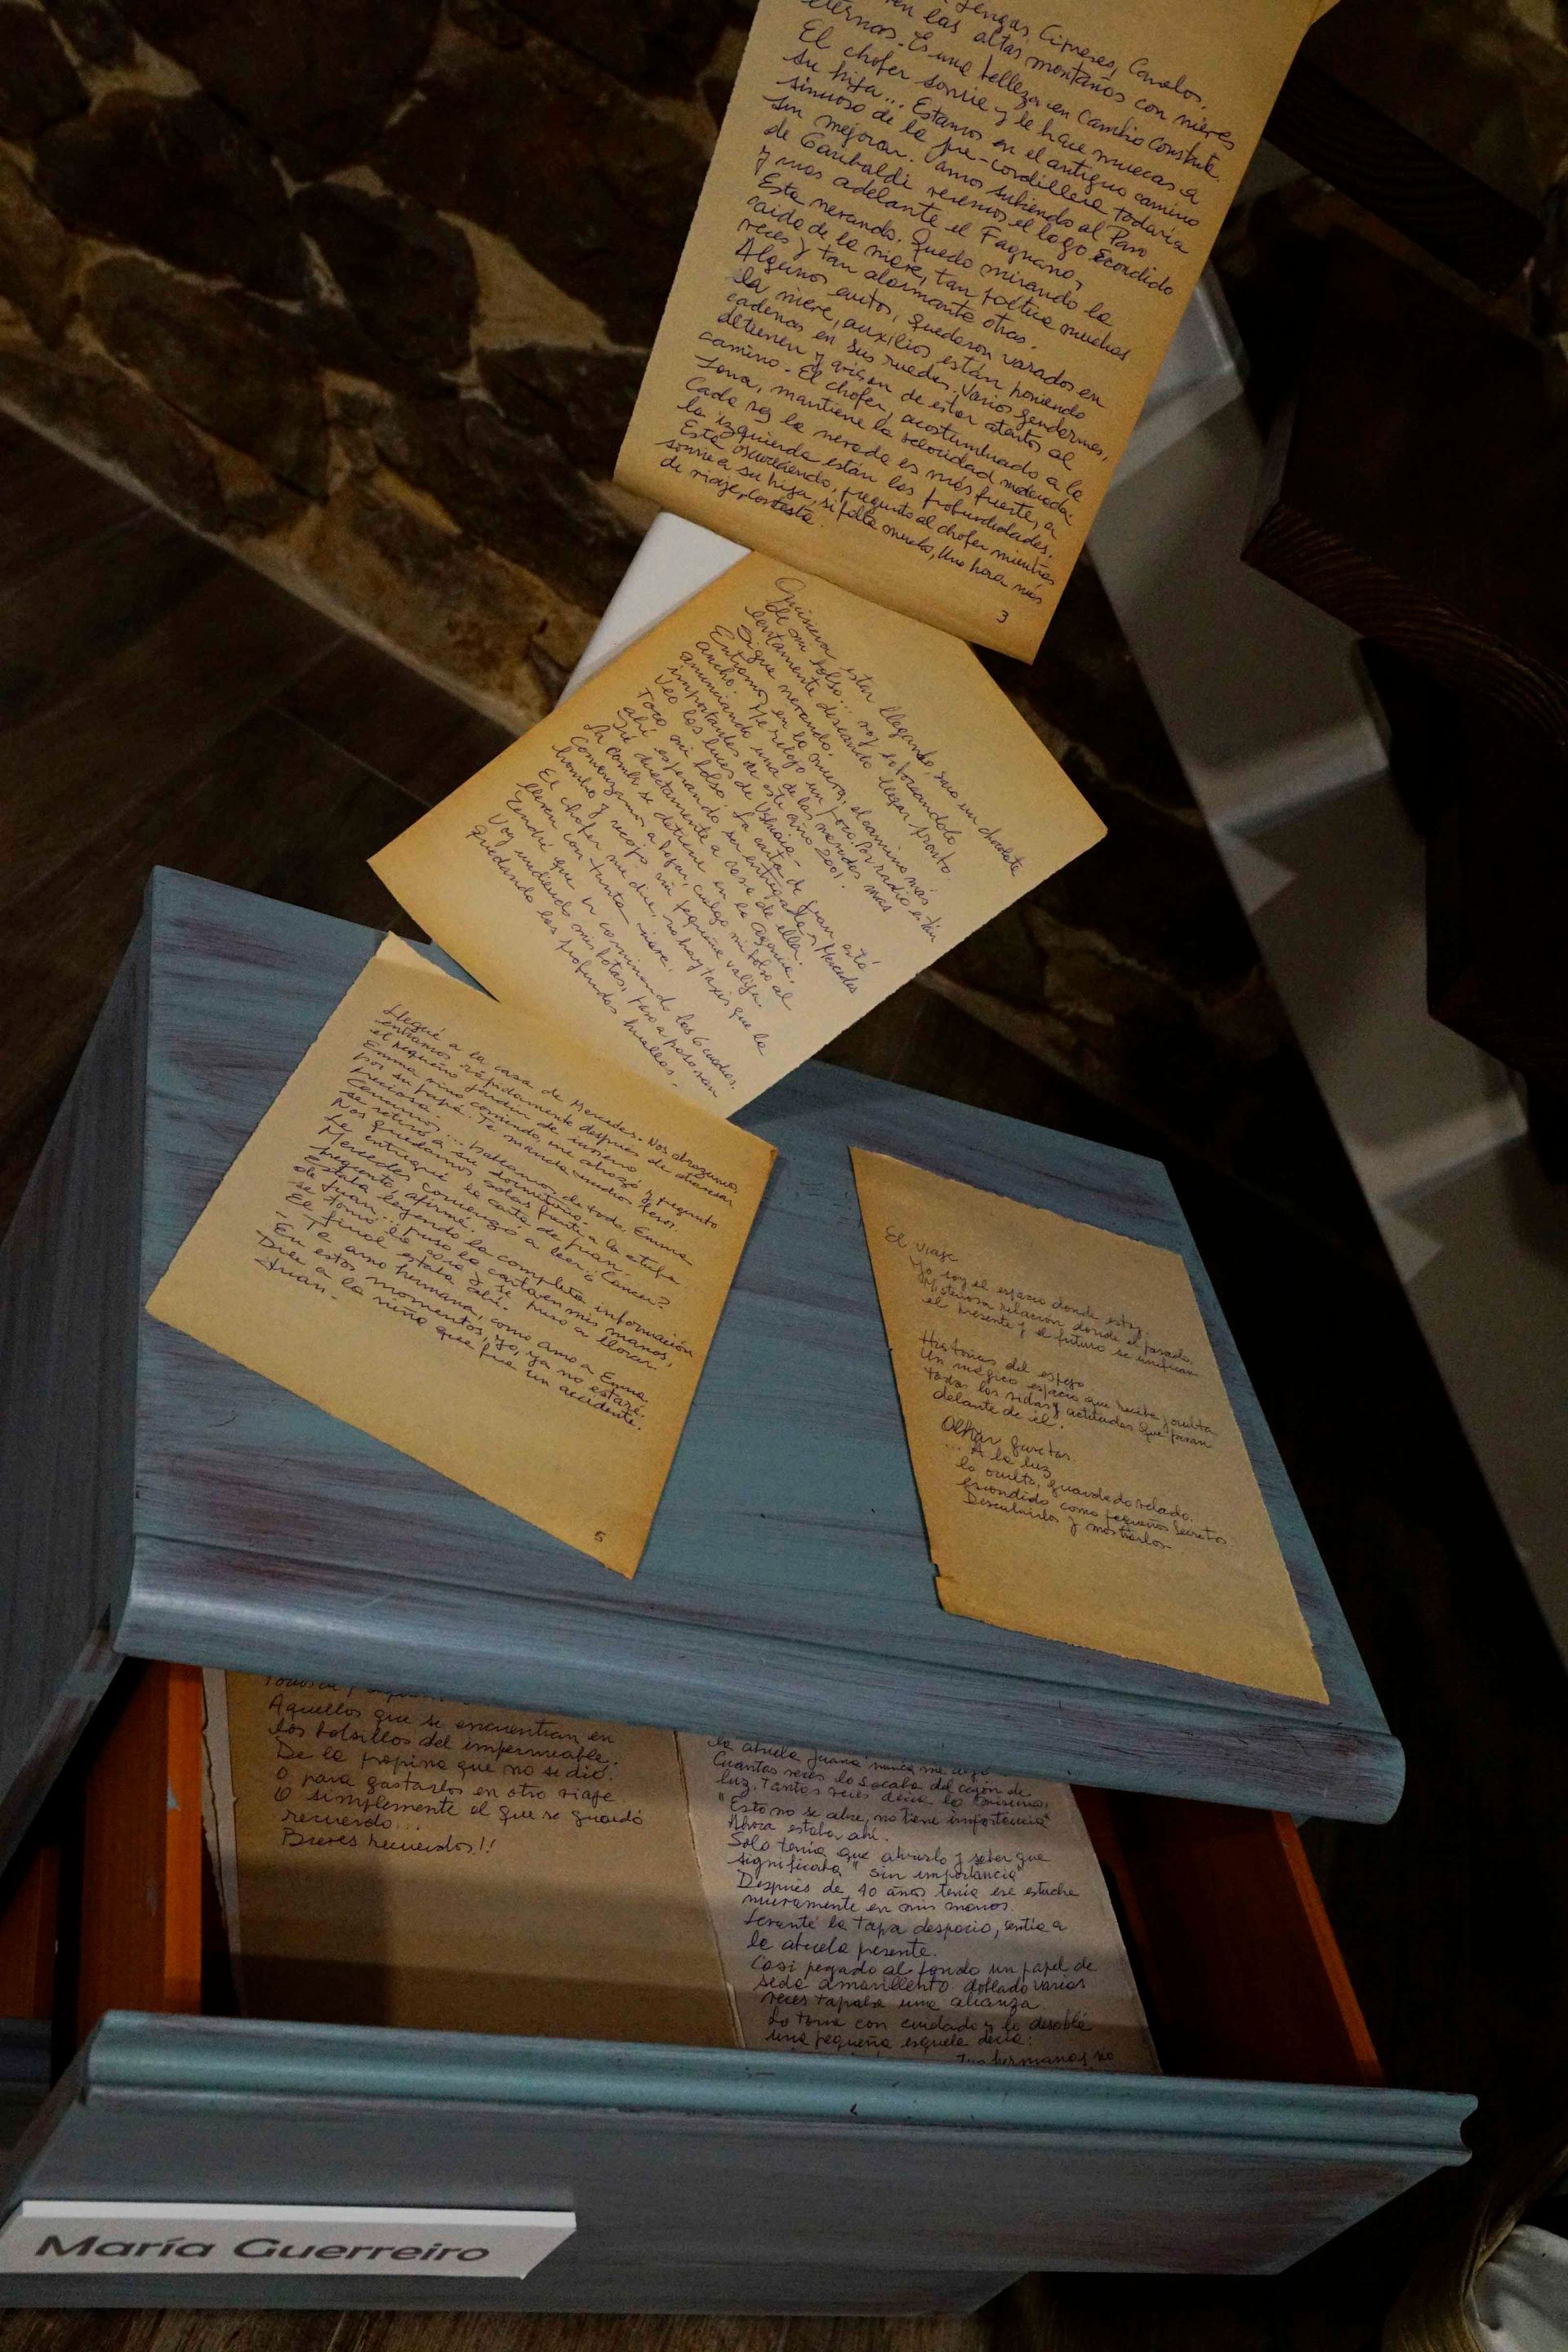 Lengas, Cipreses, Canelos,
en las altas montañas con nieves
eternas. Es una belleza en cambio constante.
El chofer sonrie y le hace muecas a
su hija... Estamos en el antiguo camino
sinuoso de la pre-cordillera todavía
sin mejorar. Vamos subiendo al Paso
de Garibaldi veremos el lago Escondido
y mas adelante el Fagnano,
Esta nevando. Quedo mirando la
caida de la nieve, tan poética muchas
veces y tan alarmante otras.
Algunos autos, quedaron varados en
la nieve, auxilios están poniendo
cadenas en sus ruedas. Varios gendarmes,
detienen y avisan de estar atentos al
camino. El chofer, acostumbrado a la
zona, mantiene la velocidad moderada.
Cada vez la nevada es más fuerte, a
la izquierda están las profundidades.
Está oscureciendo, pregunto al chofer mientras
sonrie a su hija, si falta mucho, Una hora más
de viaje, contesta.
3
Quisiera estar llegando, saco un chocolate
de mi bolso... voy saboreandolo
lentamente deseando llegar pronto.
Sigue nevando.
Entramos en la nueva, el camino más
ancho. Me relajo un poco. Por radio están
anunciando una de las nevadas mas
importantes de este año 2001.
Veo las luces de Ushuaia -
Toco mi bolso. La carta de Juan está
ahí esperando ser entregada a Mercedes
Iré directamente a casa de ella.
La combi se detiene en la agencia.
Comenzamos a bajar, cuelgo mi bolso al
hombro y recojo mi pequeña valija.
El chofer me dice, no hay taxis que la
lleven con tanta nieve.
Tendré que ir caminando las 6 cuadras.
Voy hundiendo mis botas, paso a paso, van
quedando las profundas huellas -
Llegué a la casa de Mercedes. Nos abrazamos,
entramos rápidamente después de atravesar
el pequeño jardín de invierno
Emma vino corriendo, me abrazó y preguntó
por su papá. Te manda muchos besos.
preciosa.
Cenamos... hablamos de todo. Emma
se retiró a su dormitorio.
Nos quedamos solas frente a la estufa
Le entregué la carta de Juan.
Mercedes comenzó a leer. ¿Cáncer?
preguntó, afirmé.
Estaba leyendo la completa información
de Juan... puso la carta en mis manos,
se tomó la cara y se puso a llorar.
El final estaba ahí.
- Te amo hermana, como amo a Emma.
En estos momentos, yo, ya no estaré.
Dile a la niña que fue un accidente.
Juan -
5
El viaje
Yo soy el espacio donde estoy.
Misteriosa relación donde el pasado,
el presente y el futuro se unifican
Historias del espejo
Un mágico espacio que recibe y oculta
todas las vidas y actitudes que pasan
delante de él.
Abrir gavetas
... A la luz
lo oculto, guardado velado.
Escondido como pequeños secretos
Descubrirlos y mostrarlos
Aquellos que se encuentran en
los bolsillos del impermeable.
De la propina que no se dió.
O para gastarlos en otro viaje
O simplemente el que se guardó
recuerdo...
Breves recuerdos!!
la abuela Juana nunca me dejó
Cuantas veces lo sacaba del cajón de
luz. Tantas veces decía lo mismo,
"Esto no se abre, no tiene importancia"
Ahora estaba ahí.
Solo tenia que abrirlo y saber que
significaba "sin importancia"
Después de 40 años tenía ese estuche
nuevamente en mis manos.
Levanté la tapa despacio, sentía a
la abuela presente.
Casi pegado al fondo un papel de
seda amarillento doblado varias
veces tapaba una alianza
Lo tomé con cuidado y lo desoblé
una pequeña esquela decía:
Tus hermanas no
María Guerreiro